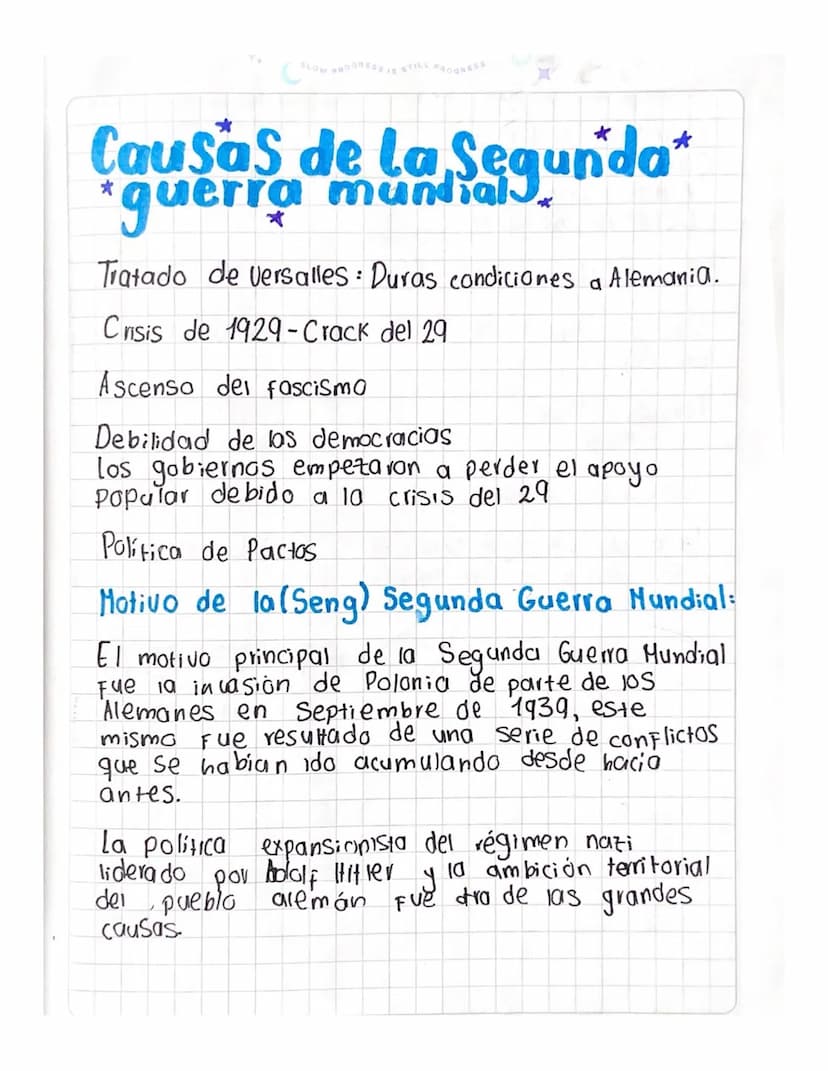 SLOW PROGRESS IS STILL PROGRESS
Causas de la Segunda
guerra mundial
Tratado de Versalles: Duras condiciones a Alemania.
Crisis de 1929-Crack del 29
Ascenso del fascismo
Debilidad de las democracias
Los gobiernos empezaron a perder el apoyo
popular debido a la crisis del 29
Política de Pactos
Motivo de la (Seng) Segunda Guerra Mundial:
El motivo principal de la Segunda Guerra Mundial
fue la invasión de Polonia de parte de los
Alemanes en Septiembre de 1939, este
mismo fue resultado de una serie de conflictos
que se habían ido acumulando desde hacia
antes.
La política expansionista del régimen nazi
liderado por Adolf Hitler y la ambición territorial
del pueblo alemán fue otra de las grandes
causas.